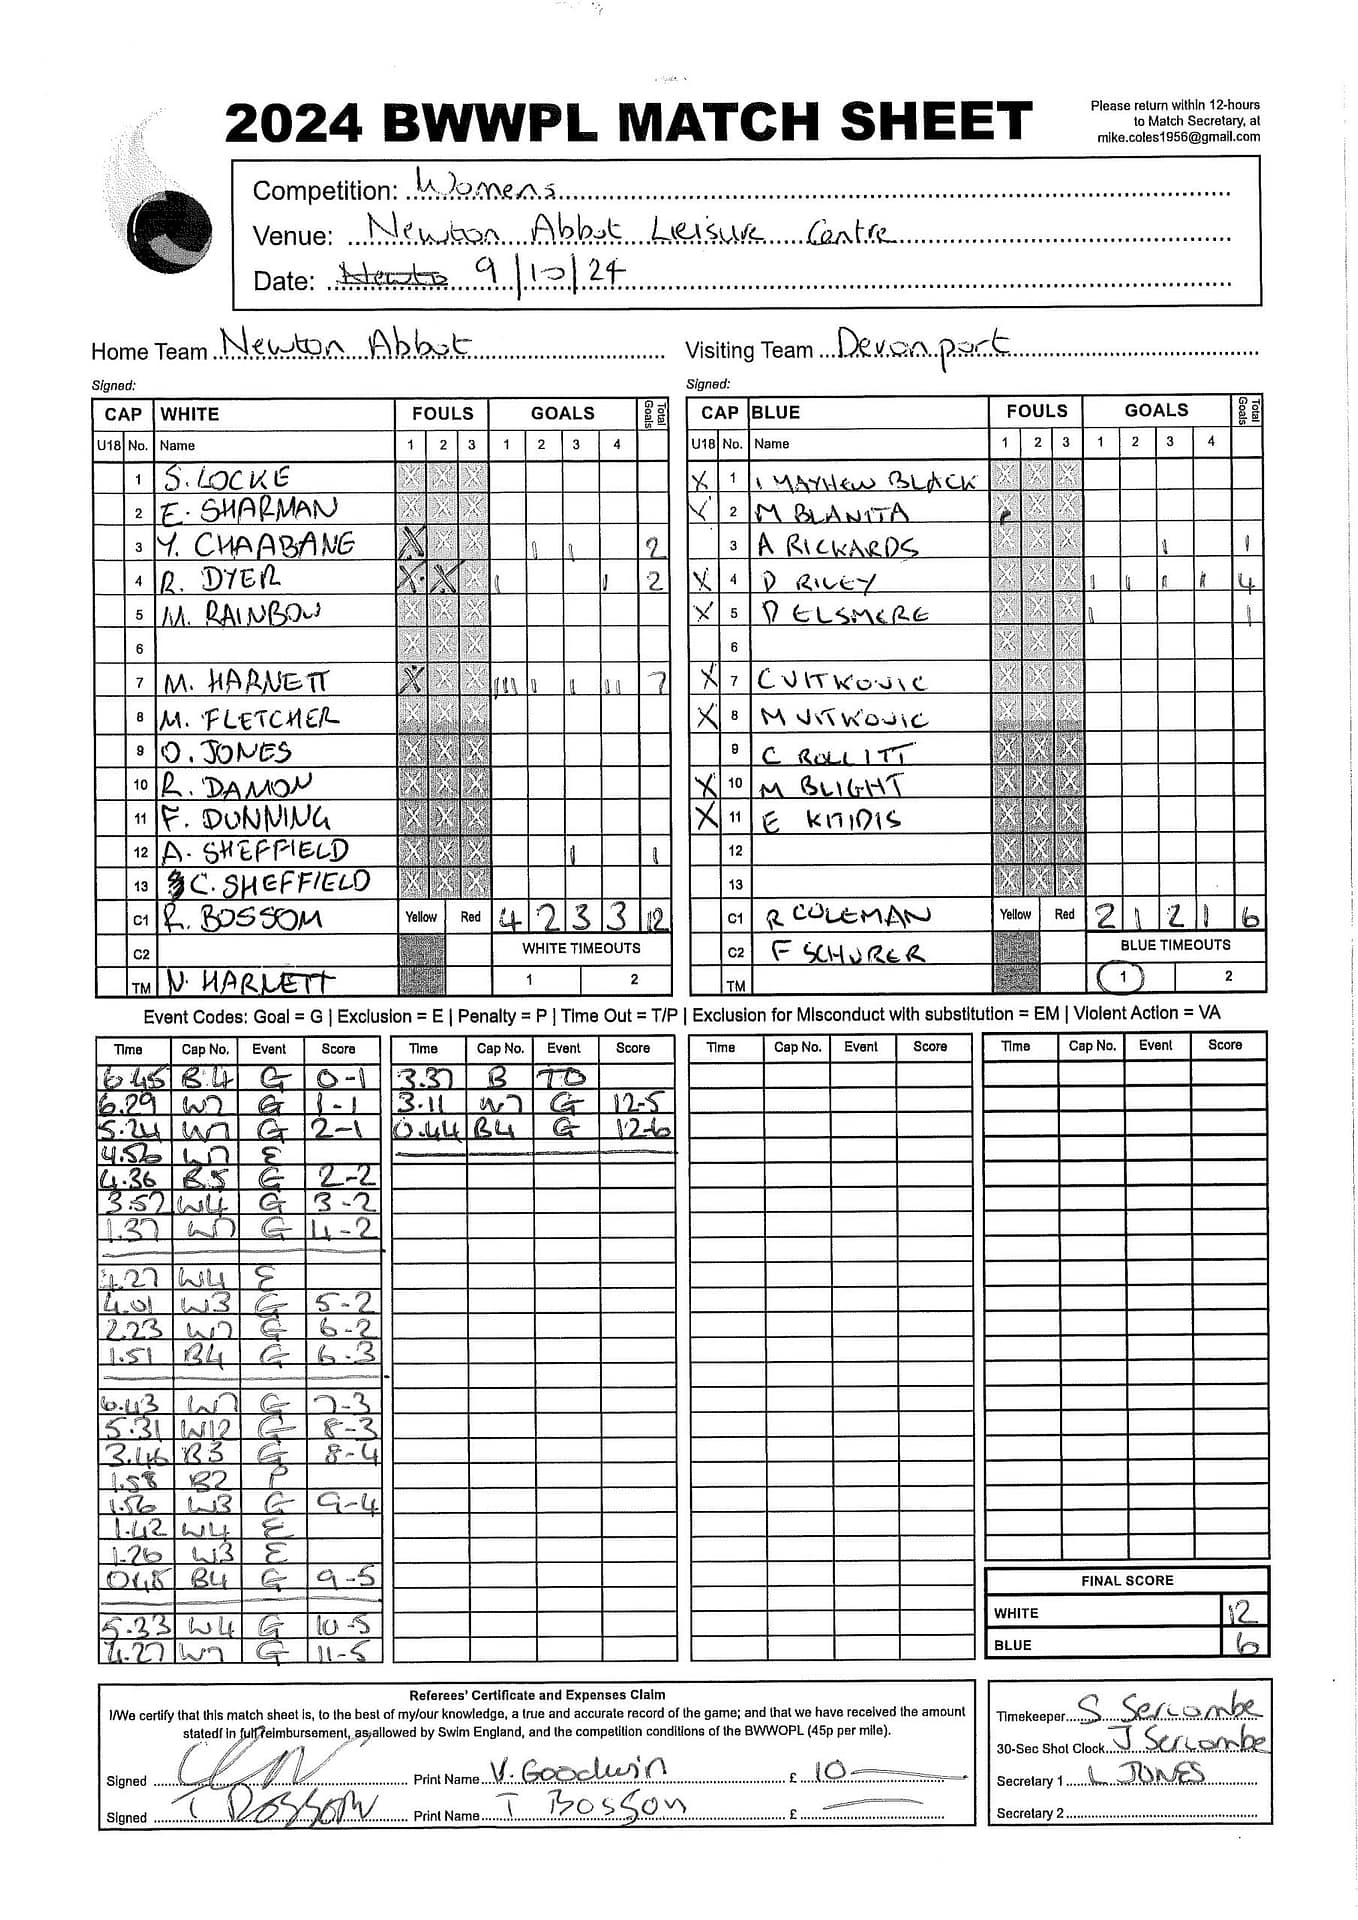 2024 BWWPL MATCH SHEET
Please return within 12-hours
to Match Secretary, at
mike.coles1956@gmail.com
Competition: Womens
Venue: Newton Abbot Leisure Centre
Date: 9/10/24
Home Team Newton Abbot Visiting Team Devonport
Signed: Signed:
CAP WHITE FOULS GOALS Total Goals
U18 No. Name 1 2 3 1 2 3 4
1 S. LOCKE
2 E. SHARMAN
3 Y. CHAABANE X I I 2
4 R. DYER X X I I 2
5 M. RAINBOW
6
7 M. HARNETT X IIII I I II 7
8 M. FLETCHER
9 O. JONES
10 R. DAMON
11 F. DUNNING
12 A. SHEFFIELD I I
13 C. SHEFFIELD
C1 R. BOSSOM Yellow Red 4 2 3 3 12
C2 WHITE TIMEOUTS
TM N. HARNETT 1 2
CAP BLUE FOULS GOALS Total Goals
U18 No. Name 1 2 3 1 2 3 4
X 1 I MAYHEW BLACK
X 2 M BLANITA
3 A RICKARDS I I
X 4 D RILEY I I I I 4
X 5 D ELSMERE I I
6
X 7 C VITKOVIC
X 8 M VITKOVIC
9 C ROLLITT
X 10 M BLIGHT
X 11 E KITIDIS
12
13
C1 R COLEMAN Yellow Red 2 1 2 1 6
C2 F SCHURER BLUE TIMEOUTS
TM 1 2
Event Codes: Goal = G | Exclusion = E | Penalty = P | Time Out = T/P | Exclusion for Misconduct with substitution = EM | Violent Action = VA
Time Cap No. Event Score
6.45 B4 G 0-1
6.29 W7 G 1-1
5.24 W7 G 2-1
4.56 W7 E
4.36 B5 G 2-2
3.57 W4 G 3-2
1.37 W7 G 4-2
4.27 W4 E
4.01 W3 G 5-2
2.23 W7 G 6-2
1.51 B4 G 6-3
6.43 W7 G 7-3
5.31 W12 G 8-3
3.46 B3 G 8-4
1.58 B2 P
1.56 W3 G 9-4
1.42 W4 E
1.26 W3 E
0.48 B4 G 9-5
5.33 W4 G 10-5
4.27 W7 G 11-5
Time Cap No. Event Score
3.37 B TO
3.11 W7 G 12-5
0.44 B4 G 12-6
Time Cap No. Event Score
Time Cap No. Event Score
FINAL SCORE
WHITE 12
BLUE 6
Referees' Certificate and Expenses Claim
I/We certify that this match sheet is, to the best of my/our knowledge, a true and accurate record of the game; and that we have received the amount
statedf in full reimbursement, as allowed by Swim England, and the competition conditions of the BWWOPL (45p per mile).
Signed Print Name V. Goodwin £ 10
Signed T Bossom Print Name T Bosson £
Timekeeper S Sercombe
30-Sec Shot Clock J Sercombe
Secretary 1 L JONES
Secretary 2